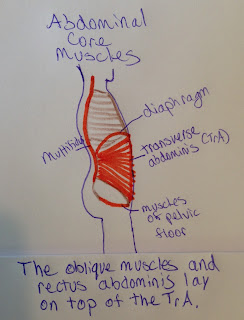 Abdominal
Core
Muscles
diaphragm
Multifidi
transverse
abdominis (TrA)
muscles
of pelvic
floor
The oblique muscles and
rectus abdominis lay
on top of the TrA.